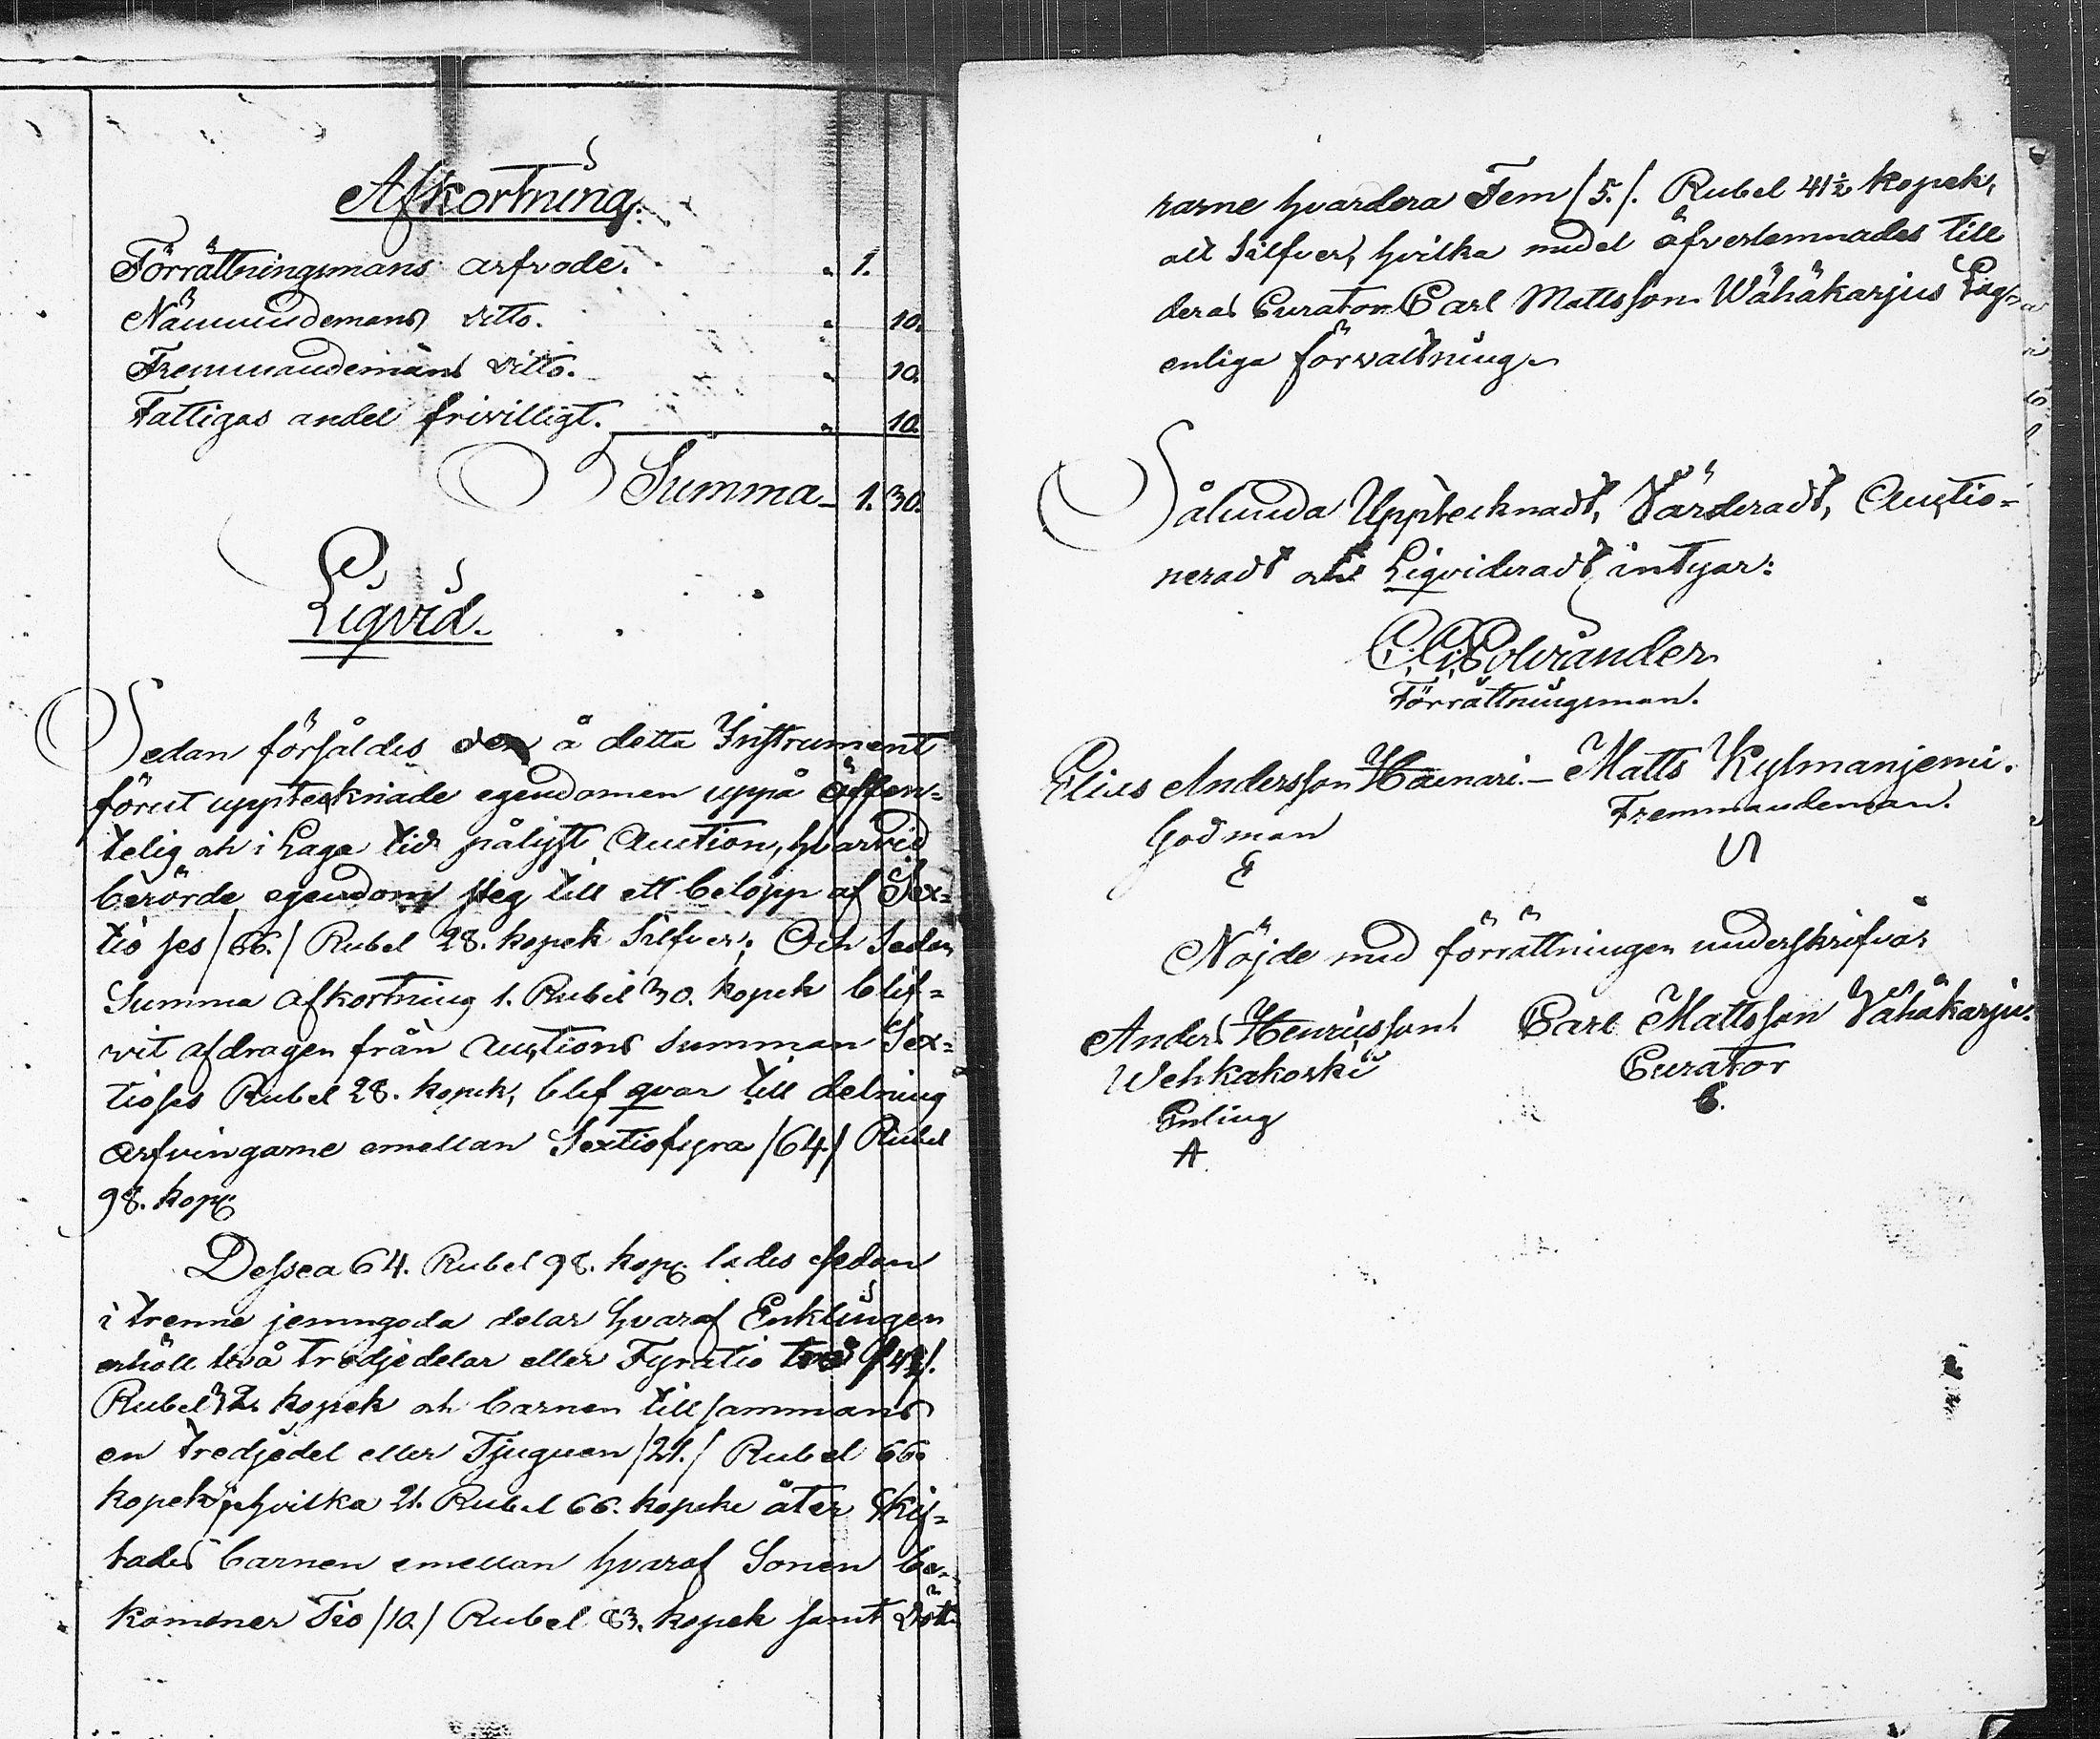 Afkortning.
Förrättningsmans arfvode. " 1.
Nämndemans ditto. " 10.
Fremmandemans ditto. " 10.
Fattigas andel frivilligt. " 10.
Summa 1. 30.
Liqvid.
Sedan försåldes den å detta Instrument
förut upptecknade egendomen uppå offen-
telig och i Laga tid pålyst Auction, hvarvid
berörde egendom steg till ett belopp af Sex-
tio sex /66./ Rubel 28. kopek Silfver; Och sedan
Summa afkortning 1. Rubel 30. kopek blif-
vit afdragen från Auctions summan Sex-
tiosex Rubel 28. kopek, blef qvar till delning
arfvingarne emellan Sextiofyra /64./ Rubel
98. kop:
Dessa 64. Rubel 98. kop: lades sedan
i trenne jemngoda delar hvaraf Enklingen
erhöll två tredjedelar eller Fyratio
Rubel 32. kopek och barnen tillsammans
en tredjedel eller Tjuguen /21./ Rubel 66.
kopek, hvilka 21. Rubel 66. kopek åter skif-
tades barnen emellan hvaraf Sonen be-
kommer Tio /10./ Rubel 83. kopek samt Dött-
rarne hvardera Fem /5./. Rubel 41½ kopek,
allt Silfver, hvilka medel öfverlemnades till
deras Curator Carl Mattsson Wähäkarjus Lag-
enliga förvaltning.
Sålunda Upptecknadt, Värderadt, Auctio-
neradt och Liqvideradt, intygar:
Förrättningsman.
Elias Andersson - Matts Kylmanjemi.
Godman Fremmandeman.
E
Nöjde med förrättningen underskrifva:
Anders Henricsson Carl Mattsson Vähäkarju.
Wehkakoski Curator
Enling C.
A